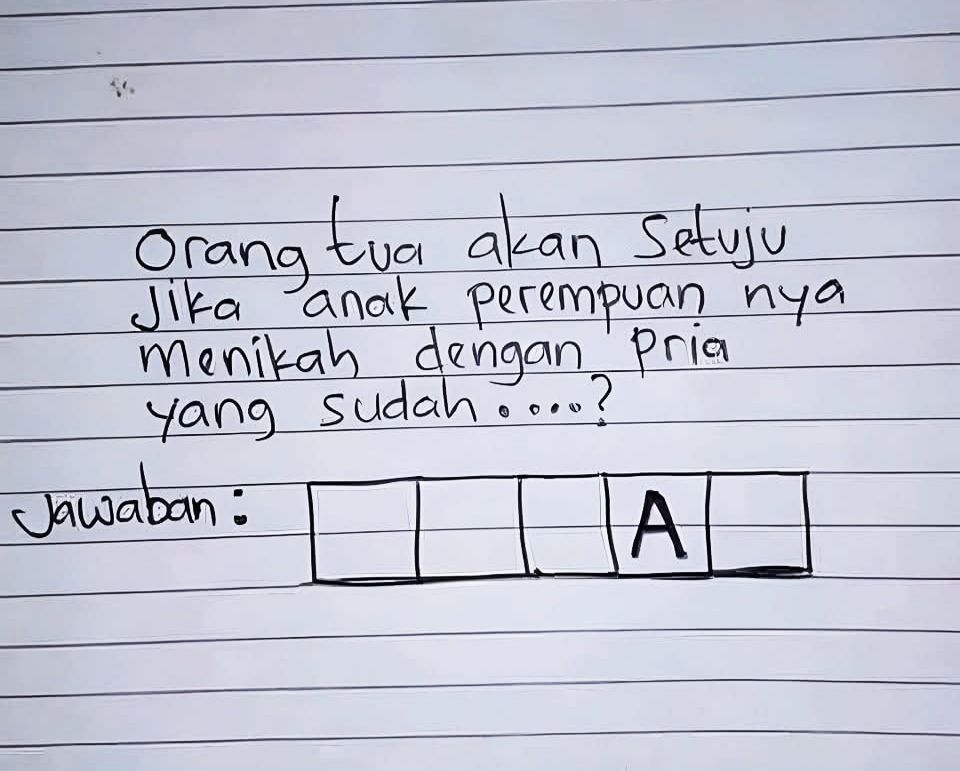 Orang tua akan Setuju
Jika anak perempuan nya
Menikah dengan pria
yang sudah.....?
Jawaban :
A